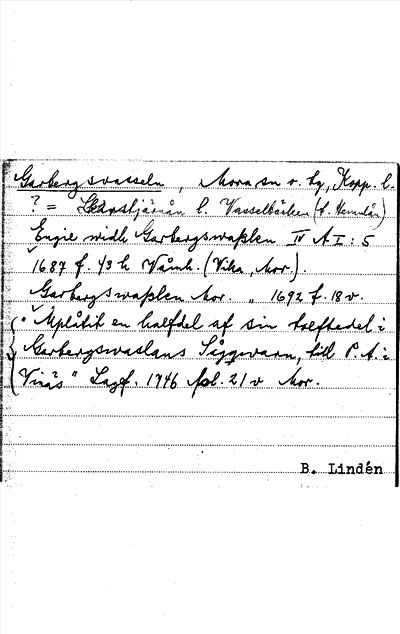 Garbergsvasseln, Mora sn o. tg, Kopp. l.
? = tjärnån l. Vasselbäcken (t. Hemulån)
Engie widh Garbergswaßlen IV A I: 5
1687 f. 43 h Wåmh. (Vika, Mor.)
Garbergswaßlen Mor. " 1692 f. 18 v.
" Uplåtit en halfdel af sin tolftedel i
Garbergswaslans Sågqwarn, till P. A. i
Vinäs" Lagf. 1746 fol. 21 v Mor.
B. Lindén